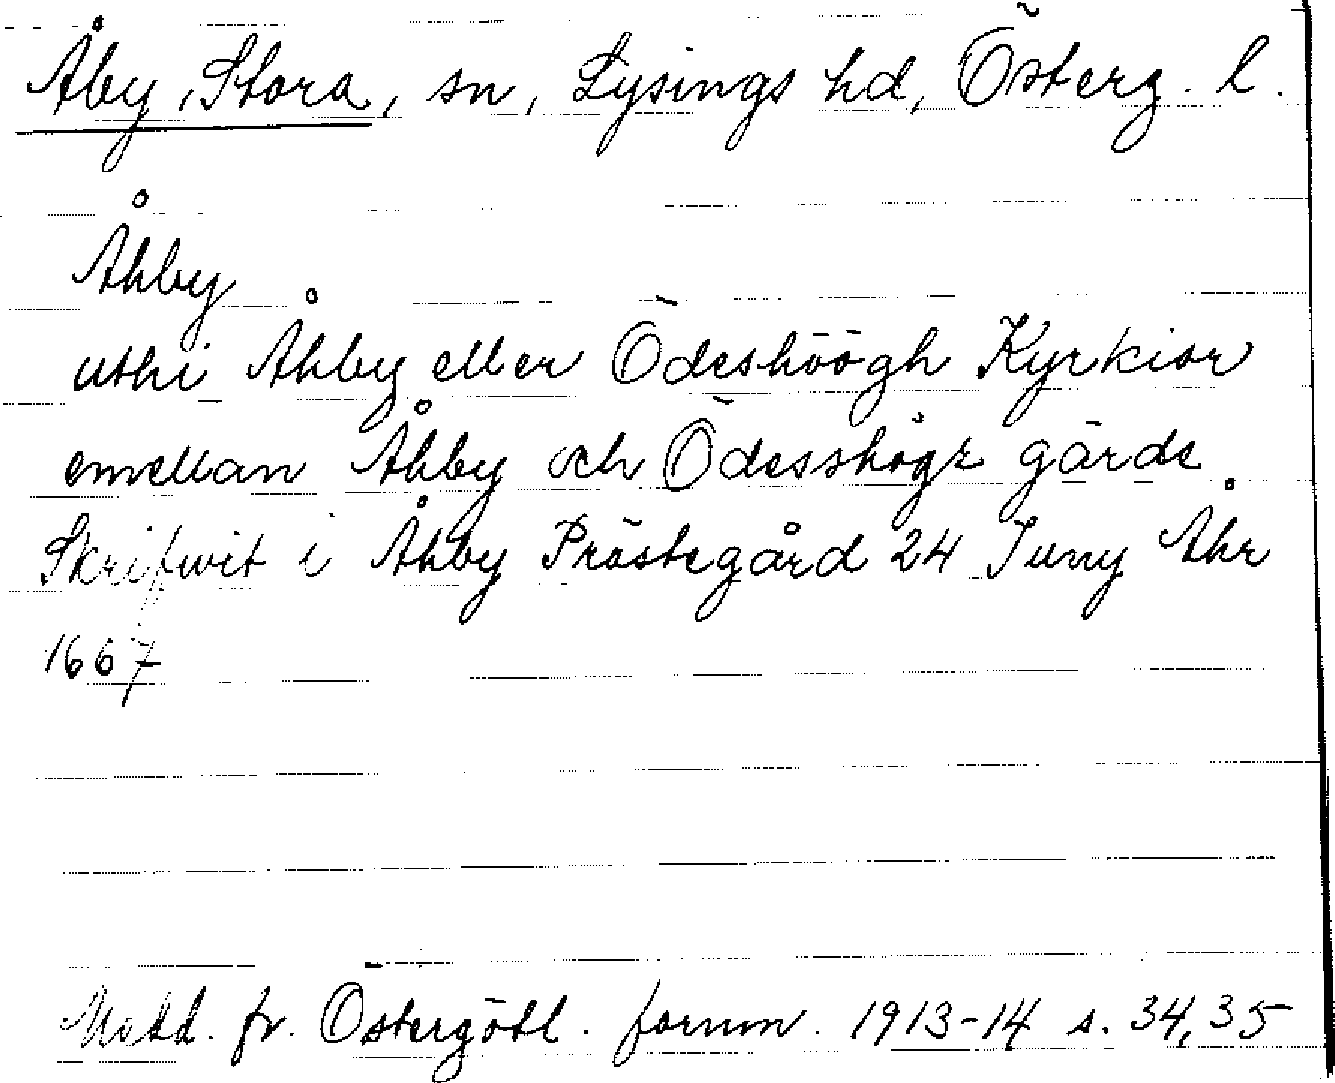 Åby, Stora, sn, Lysings hd, Österg. l.
Åhby
uthi Åhby eller Ödeshöögh Kyrkior
emellan Åhby och Ödesshögz gärde
Skrifwit i Åhby Prästegård 24 Juny Ahr
1667
Medd. fr. Östergötl. fornm. 1913-14 s. 34,35